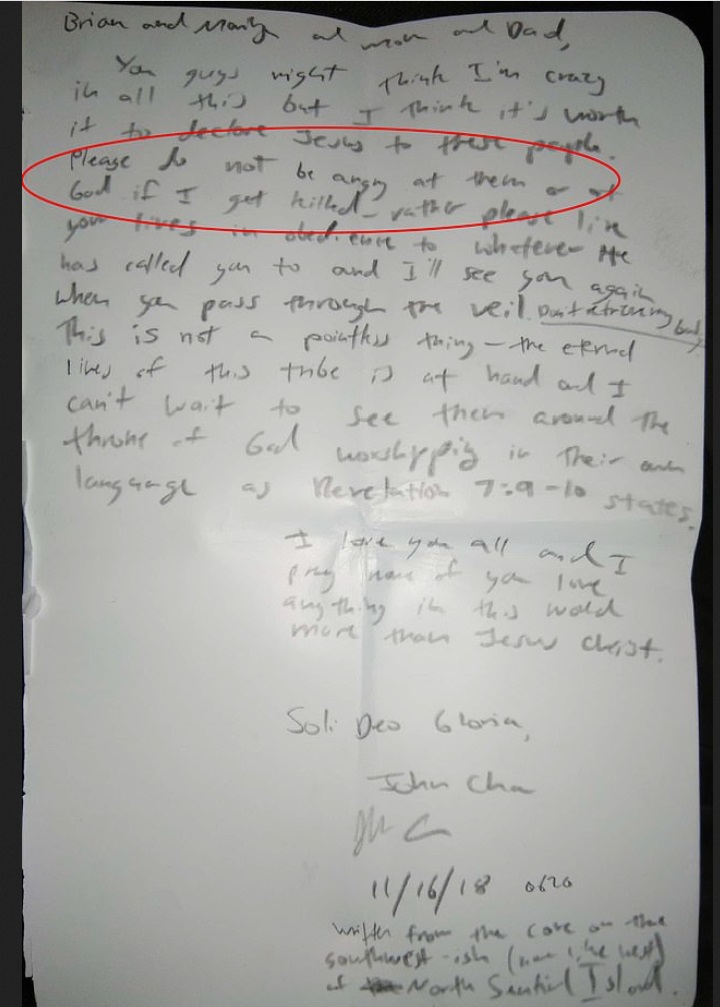 Brian and Marilyn and mom and Dad,
You guys might think I'm crazy
in all this but I think it's worth
it to declare Jesus to these people.
Please do not be angry at them or at
God if I get killed - rather please live
your lives in obedience to whatever He
has called you to and I'll see you again
when you pass through the veil. Don't
This is not a pointless thing - the eternal
lives of this tribe is at hand and I
can't wait to see them around the
throne of God worshipping in their own
language as Revelation 7:9-10 states.
I love you all and I
pray none of you love
anything in this world
more than Jesus Christ.
Soli Deo Gloria,
John Chau
11/16/18 0620
Written from the cove on the
southwest-ish (more like west)
of North Sentinel Island.